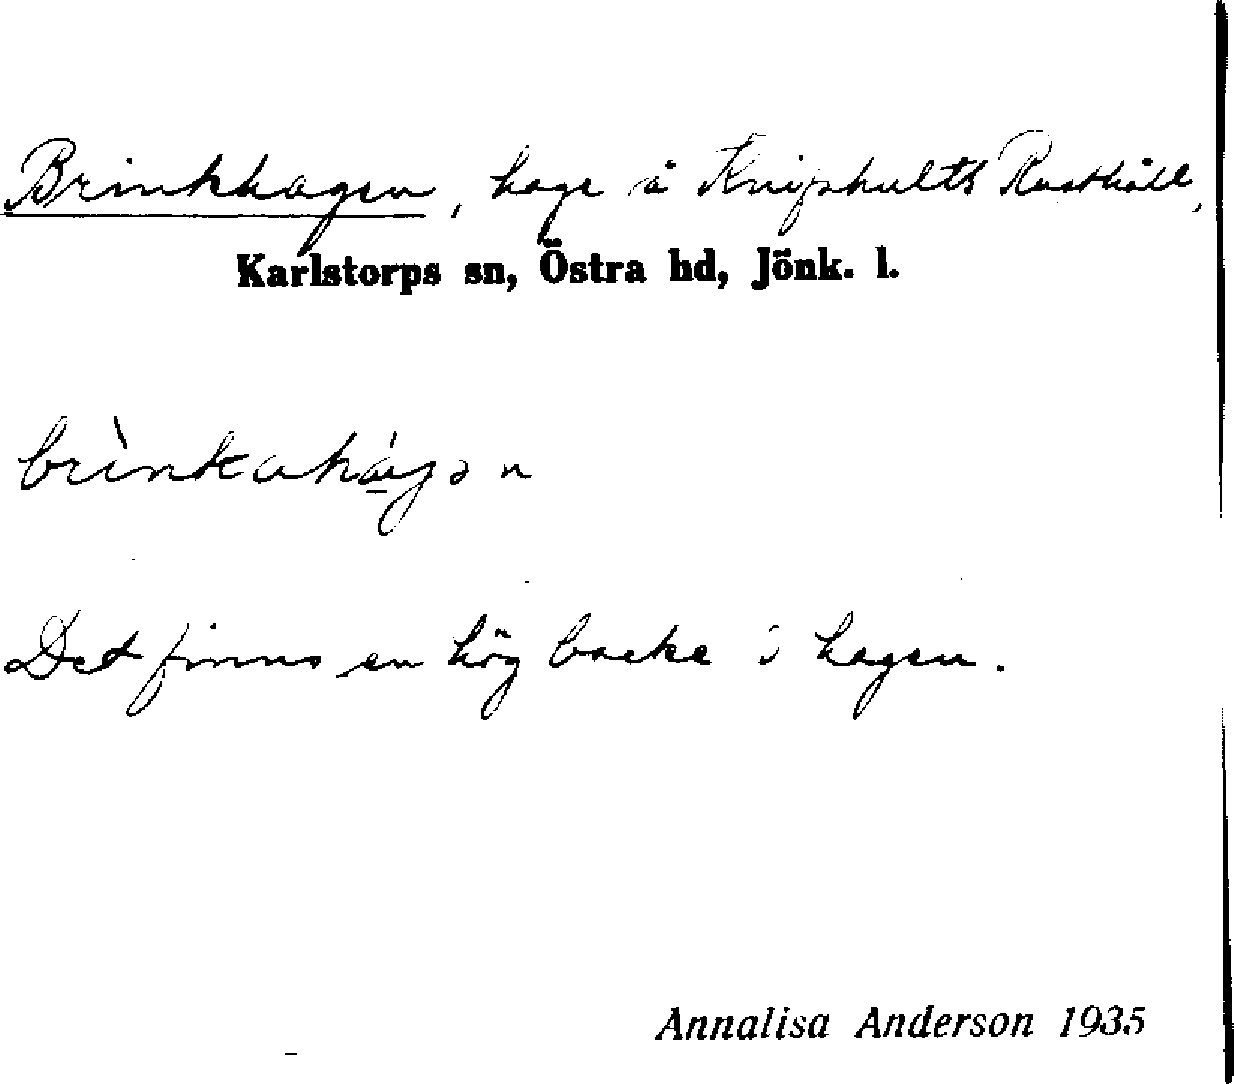 Brinkhagen, hage å Knipshults Rusthåll,
Karlstorps sn, Östra hd, Jönk. l.
brìnkahágən
Det finns en hög backe i hagen.
Annalisa Anderson 1935